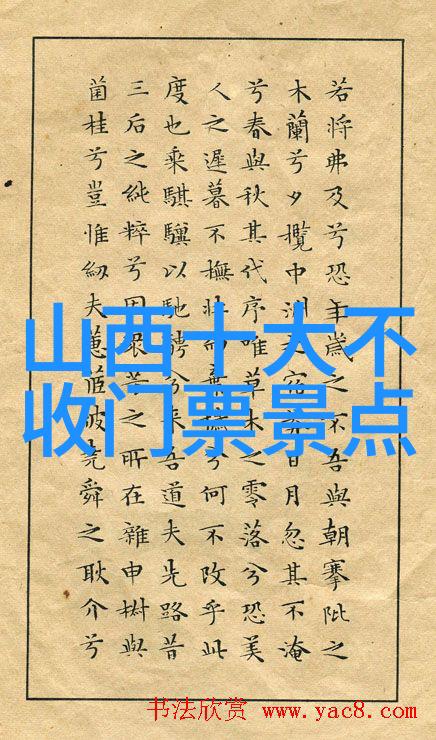 若將弗及兮恐年歲之不吾與朝搴阰之
木蘭兮夕攬中洲之宿莽日月忽其不淹
兮春與秋其代序唯草木之零落兮恐美
人之遲暮不撫壯而棄穢兮何不改乎此
度也乘騏驥以馳騁兮来吾道夫先路昔
三后之純粹兮固眾芳之所在雜申椒與
菌桂兮豈惟紉夫蕙茝彼堯舜之耿介兮
山西十大不
收门票景点
书法欣赏 www.yac8.com